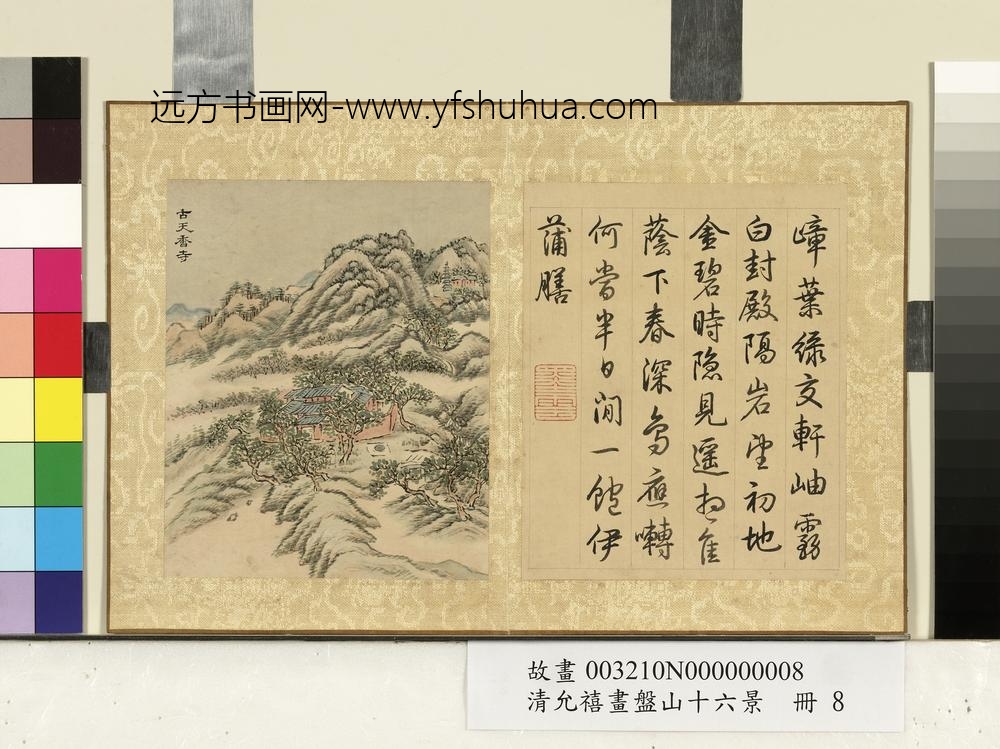 远方书画网-www.yfshuhua.com
古天香寺
嶂葉綠文軒岫霧
白封殿隔岩望初地
金碧時隐見遥想佳
蔭下春深鳥應囀
何當半日閒一飽伊
蒲膳
故畫 003210N000000008
清允禧畫盤山十六景 冊 8